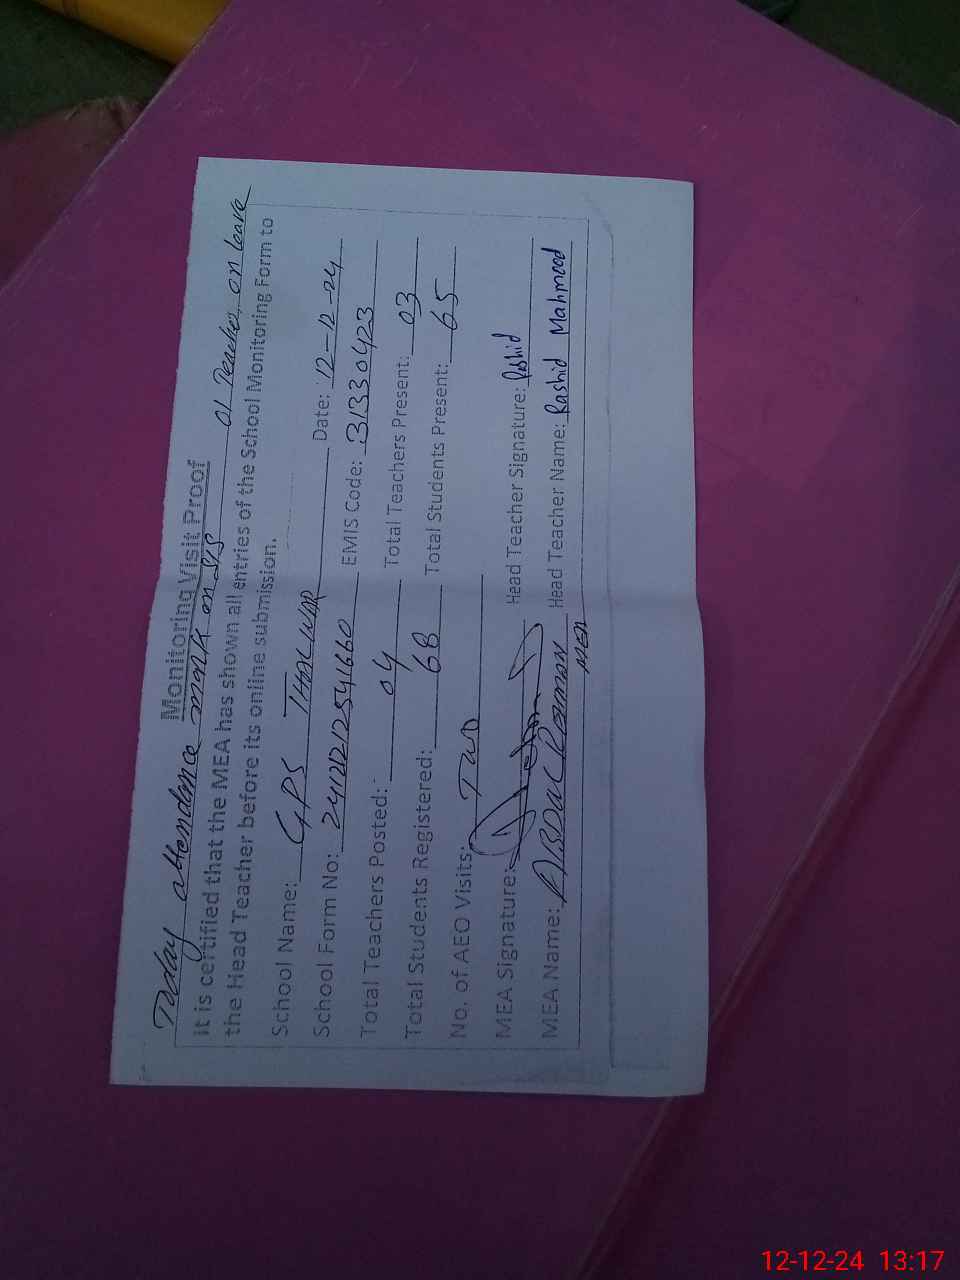 Monitoring Visit Proof
Today attendance mark on SIS 01 Teacher on leave
It is certified that the MEA has shown all entries of the School Monitoring Form to
the Head Teacher before its online submission.
School Name: GPS THALWAR Date: 12-12-24
School Form No: EMIS Code: 31330423
Total Teachers Posted: 04 Total Teachers Present: 03
Total Students Registered: 68 Total Students Present: 65
No. of AEO Visits: Two
MEA Signature: Head Teacher Signature: Rashid
MEA Name: ABDUL REHMAN Head Teacher Name: Rashid Mahmood
MEA
12-12-24 13:17